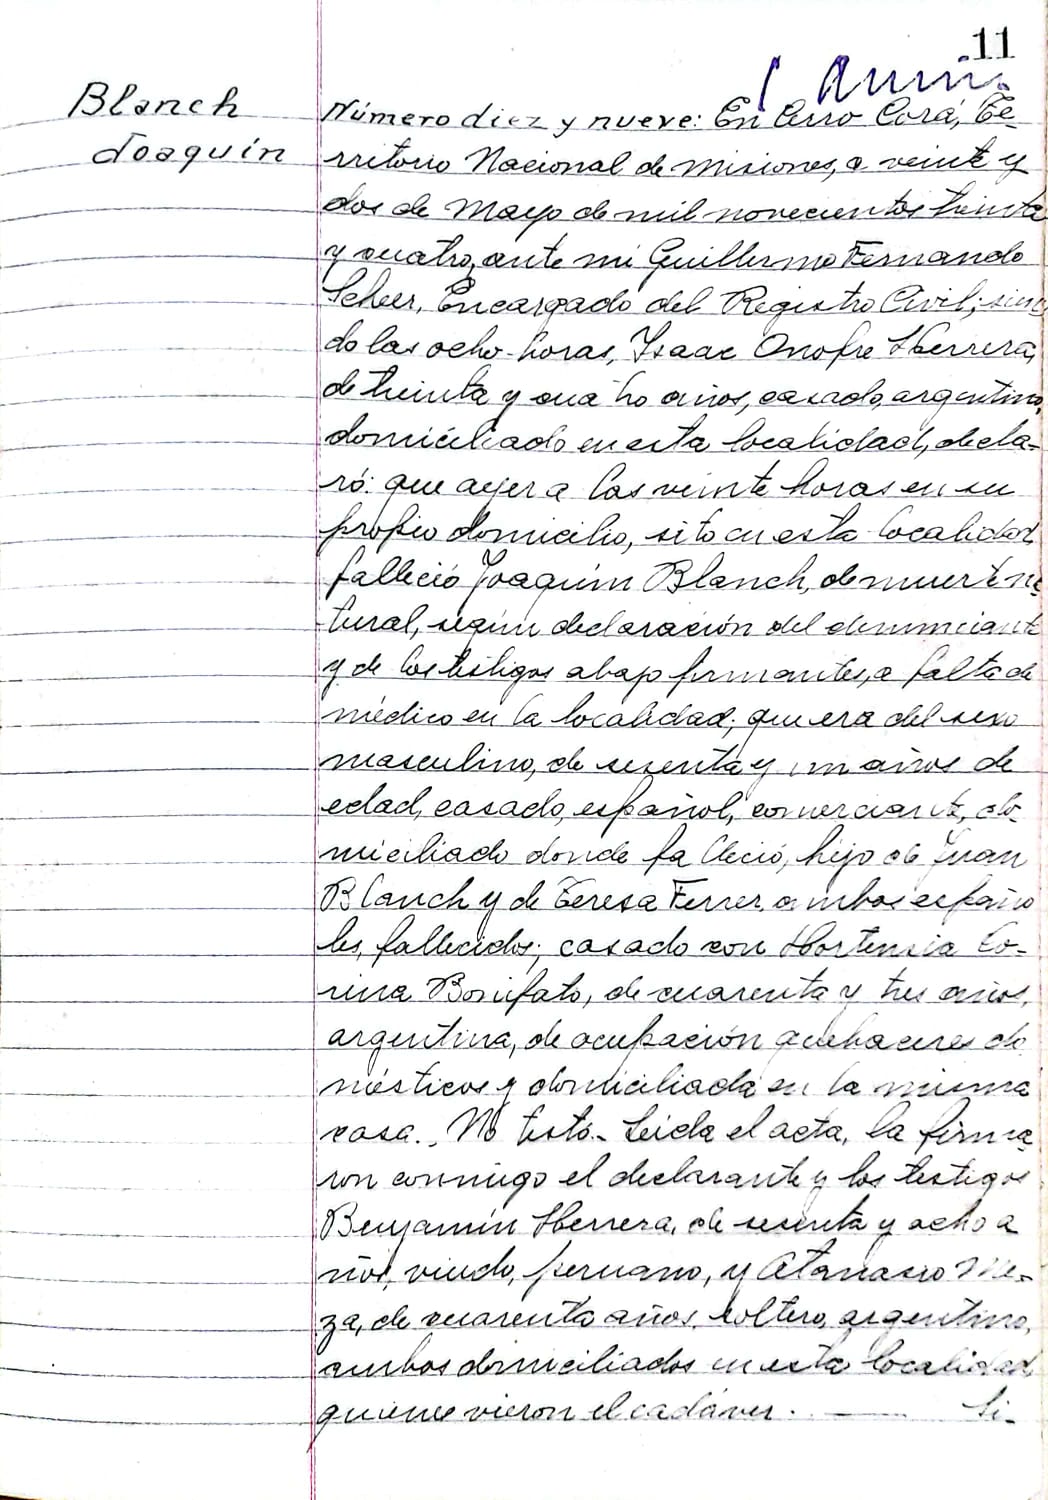 11
Blanch
Joaquín
Número diez y nueve: En Cerro Corá, Te-
rritorio Nacional de Misiones, a veinte y
dos de Mayo de mil novecientos treinta
y cuatro, ante mi Guillermo Fernando
Scheer, Encargado del Registro Civil; sien
do las ocho horas, Isaac Onofre Herrera,
de treinta y cuatro años, casado, argentino,
domiciliado en esta localidad, decla-
ró: que ayer a las veinte horas en su
propio domicilio, sito en esta localidad,
falleció Joaquím Blanch, de muerte na
tural, según declaración del denunciante
y de los testigos abajo firmantes, a falta de
médico en la localidad; que era del sexo
masculino, de sesenta y un años de
edad, casado, español, comerciante, do
miciliado donde falleció, hijo de Juan
Blanch y de Teresa Ferrer, ambos españo
les, fallecidos; casado con Hortensia Co-
rina Bonifato, de cuarenta y tres años,
argentina, de ocupación quehaceres do
mésticos y domiciliada en la misma
casa.. No testó.- Leída el acta, la firma
ron conmigo el declarante y los testigos
Benjamín Herrera, de sesenta y ocho a
ños, viudo, peruano, y Atanacio Me-
za, de cuarenta años, soltero, argentino,
ambos domiciliados en esta localidad,
quienes vieron el cadáver. —— Si-